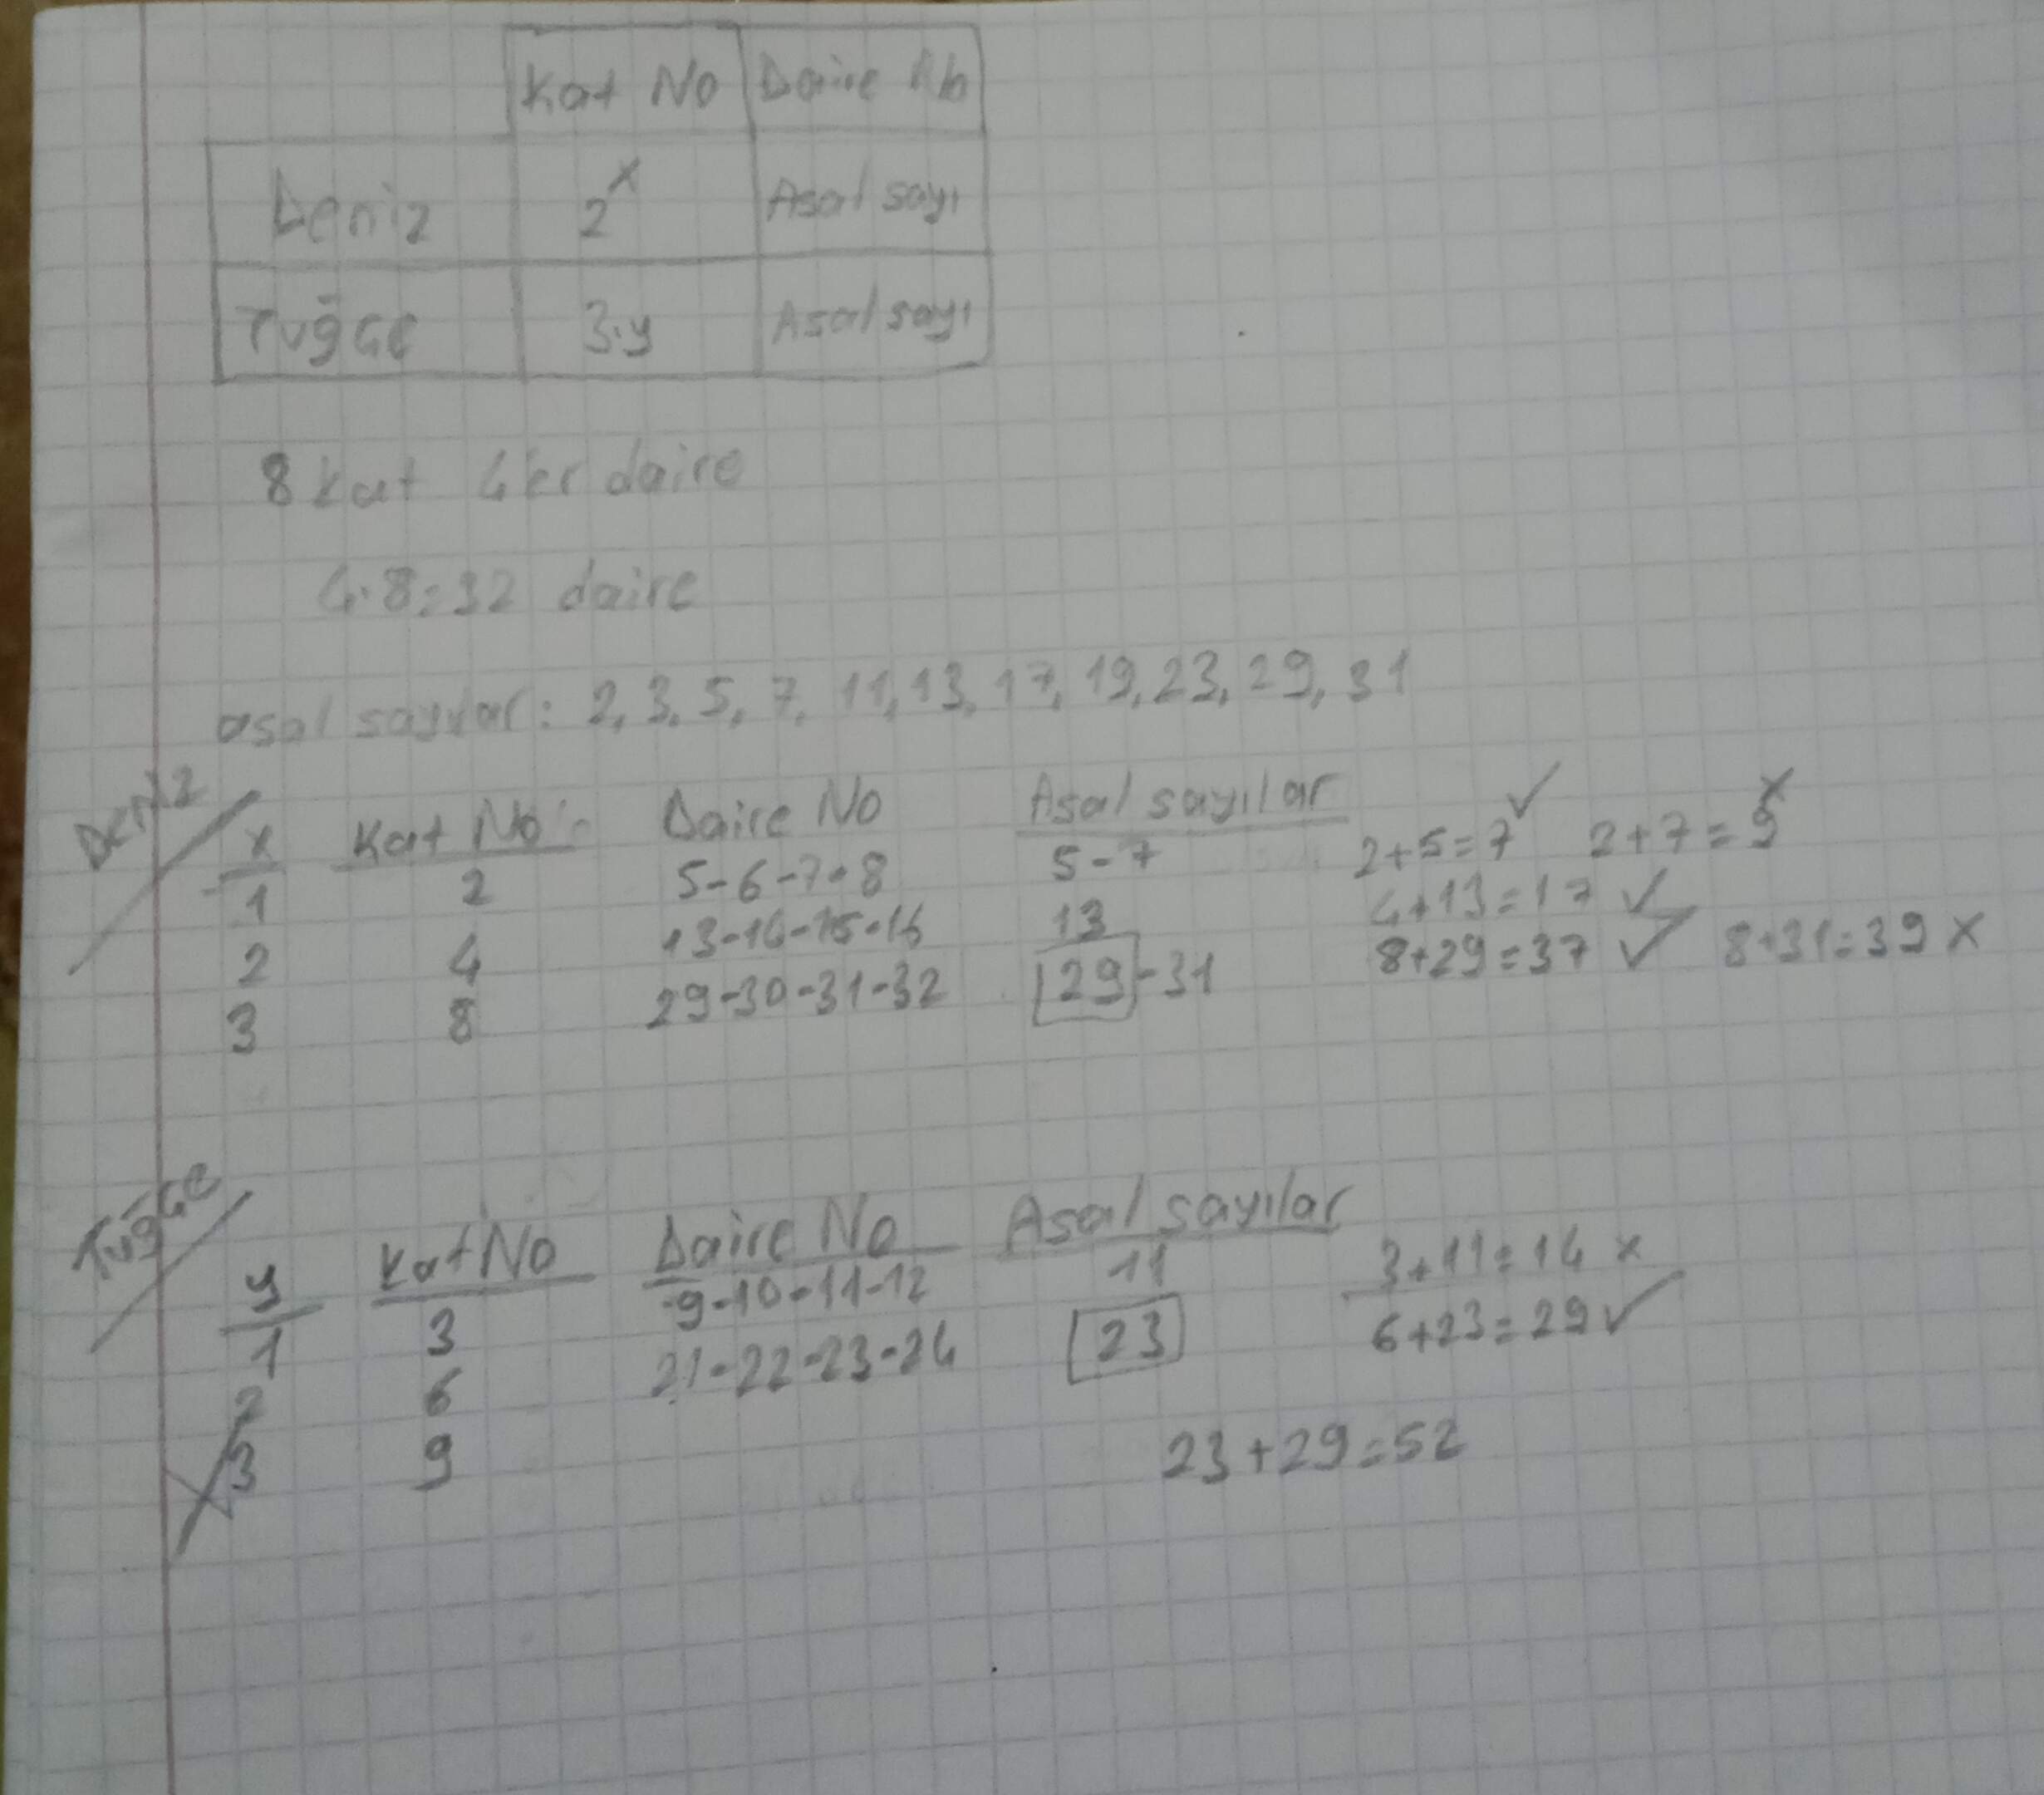 Kat No Daire No
Deniz 2^x Asal sayı
Tuğçe 3.y Asal sayı
8 kat 4'er daire
4.8=32 daire
asal sayılar: 2, 3, 5, 7, 11, 13, 17, 19, 23, 29, 31
Deniz
x Kat No Daire No Asal sayılar
1 2 5-6-7-8 5-7 2+5=7 ✓ 2+7=9 x
2 4 13-14-15-16 13 4+13=17 ✓
3 8 29-30-31-32 29-31 8+29=37 ✓ 8+31=39 x
Tuğçe
y Kat No Daire No Asal sayılar
1 3 9-10-11-12 11 3+11=14 x
2 6 21-22-23-24 23 6+23=29 ✓
3 9
23+29=52